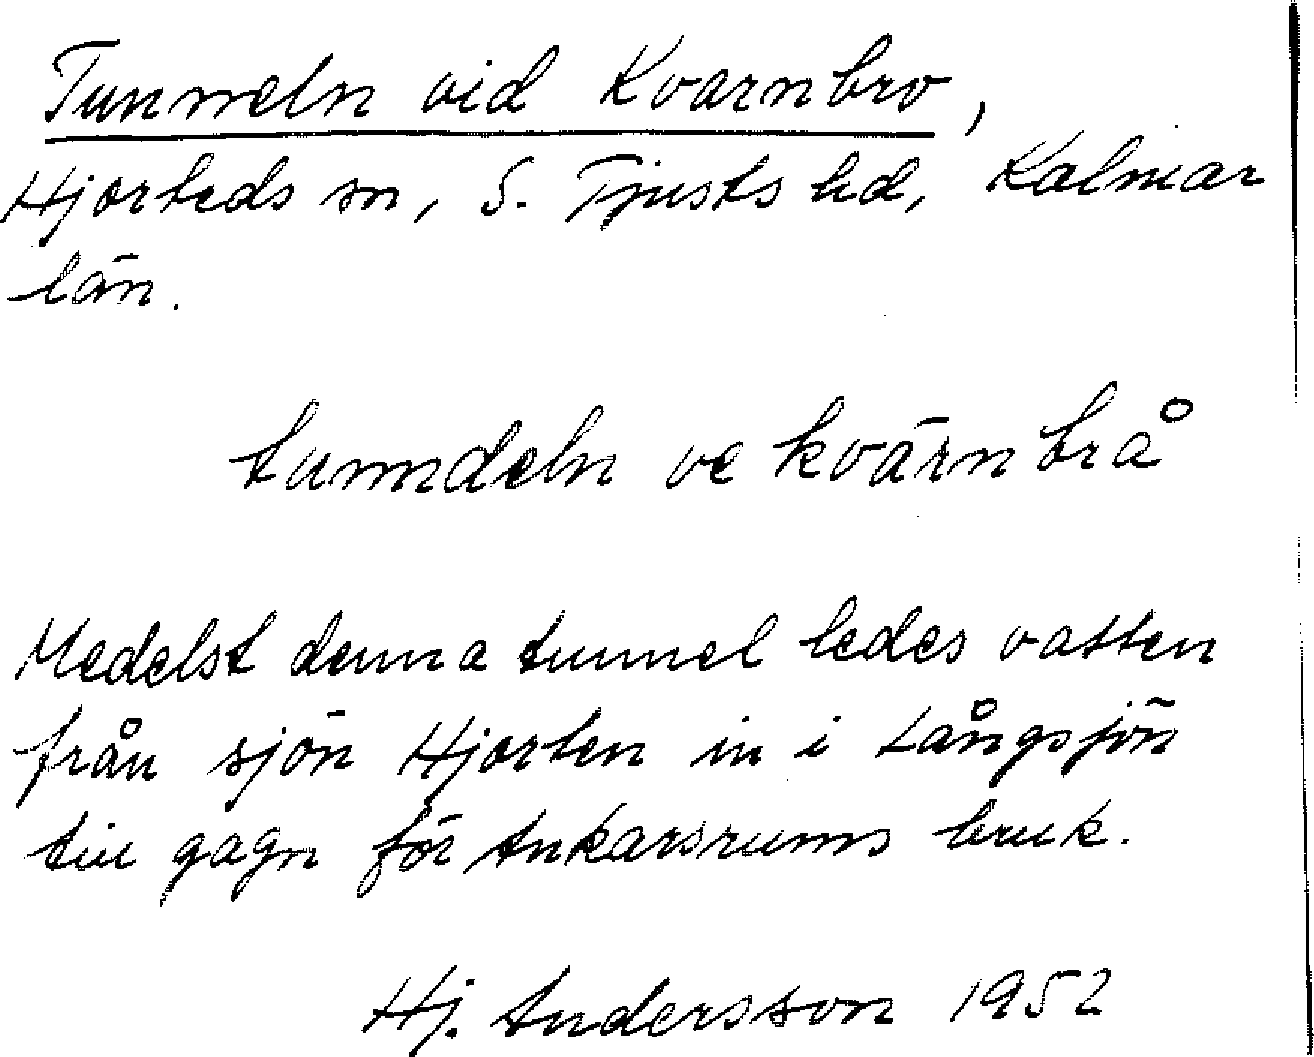 Tunneln vid Kvarnbro,
Hjorteds sn, S. Tjusts hd, Kalmar
län.
tunndeln ve kvärnbrå
Medelst denna tunnel ledes vatten
från sjön Hjorten in i Långsjön
till gagn för Ankarsrums bruk.
Hj. Andersson 1952